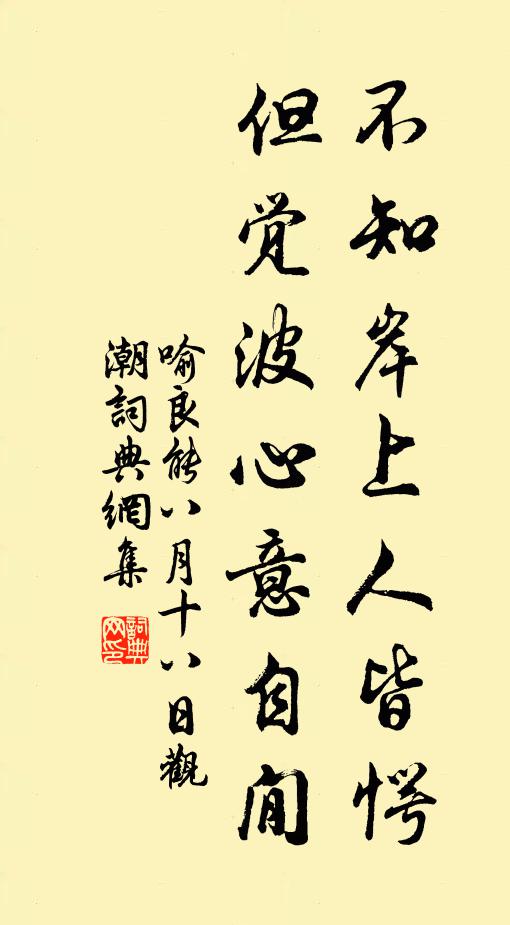 不知岸上人皆愕
但觉波心意自闲
喻良能八月十八日觀
潮詞典網集
詞典网印